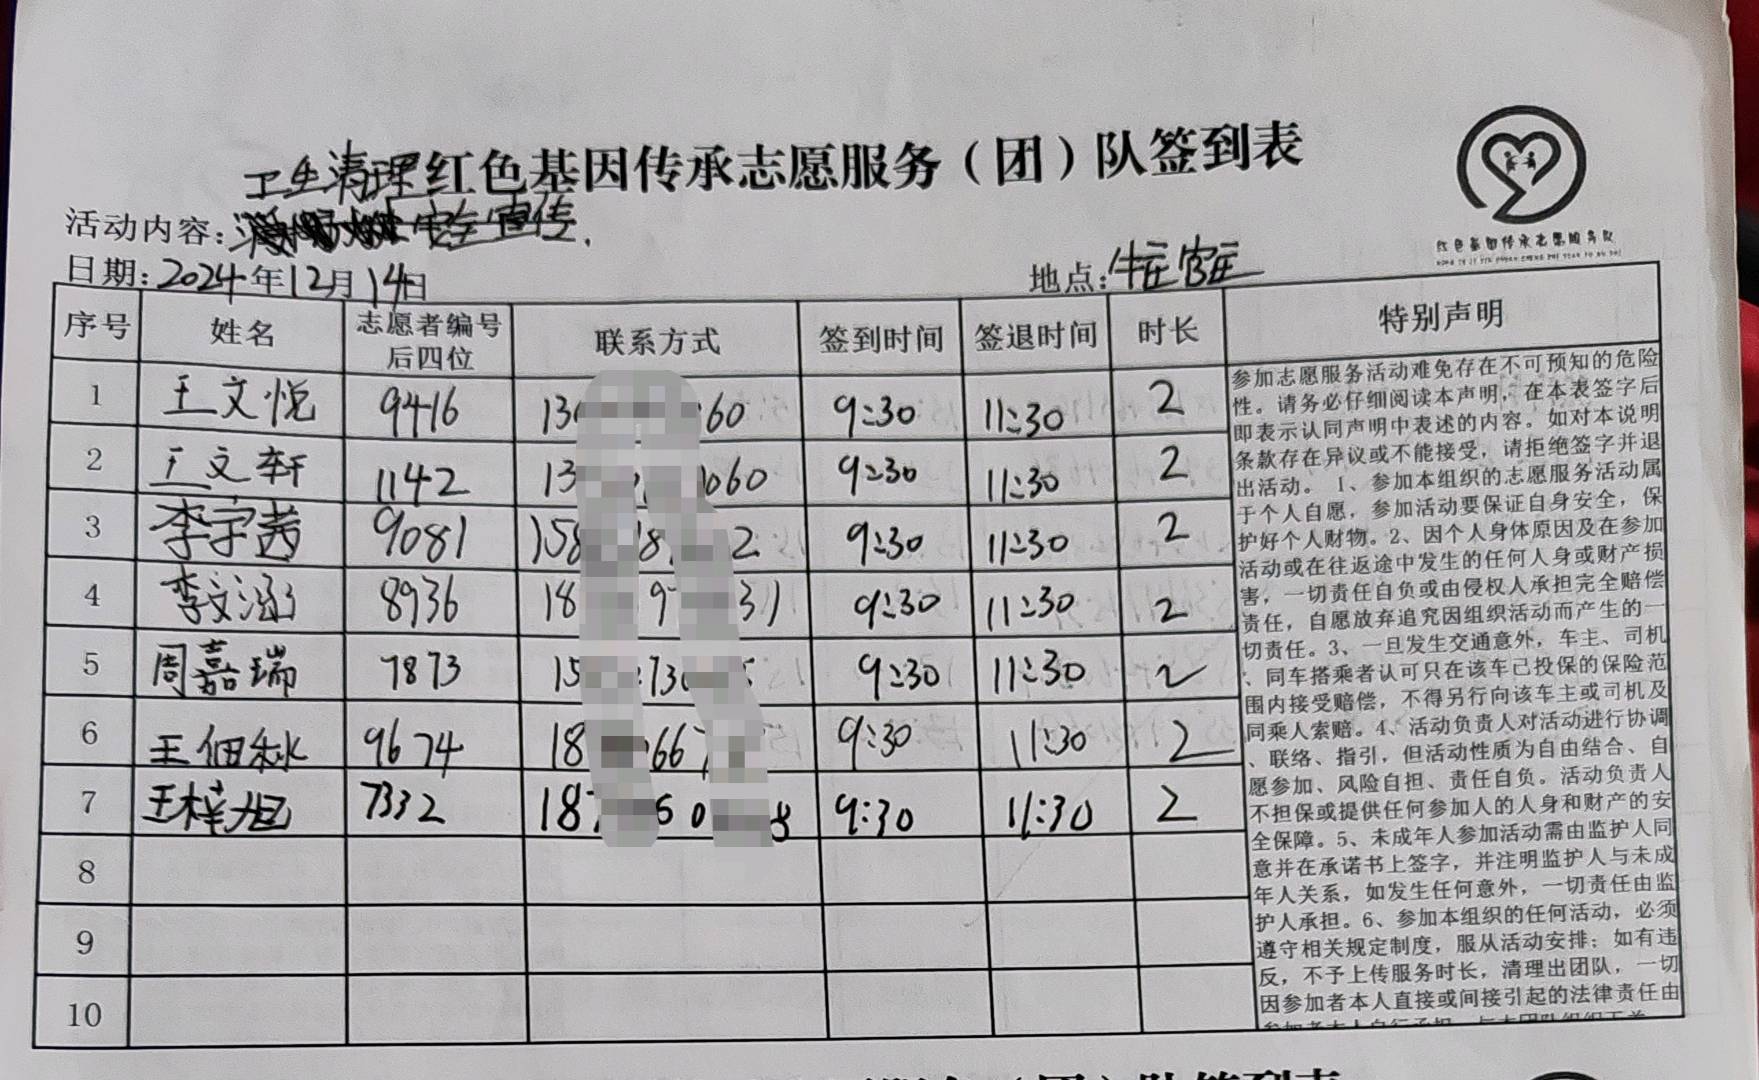 红色基因传承志愿服务（团）队签到表
卫生清理
活动内容：安全宣传.
红色基因传承志愿服务队
日期：2024年12月14日 地点：官庄
序号 姓名 志愿者编号后四位 联系方式 签到时间 签退时间 时长 特别声明
1 王文悦 9416 13 60 9:30 11:30 2
2 王文轩 1142 13 060 9:30 11:30 2
3 李宇茜 9081 158 18 2 9:30 11:30 2
4 李文涵 8936 18 9 31 9:30 11:30 2
5 周嘉瑞 7873 15 730 9:30 11:30 2
6 王佃秋 9674 18 66 9:30 11:30 2
7 王梓旭 7332 187 50 8 9:30 11:30 2
8
9
10
参加志愿服务活动难免存在不可预知的危险
性。请务必仔细阅读本声明，在本表签字后
即表示认同声明中表述的内容。如对本说明
条款存在异议或不能接受，请拒绝签字并退
出活动。 1、参加本组织的志愿服务活动属
于个人自愿，参加活动要保证自身安全，保
护好个人财物。2、因个人身体原因及在参加
活动或在往返途中发生的任何人身或财产损
害，一切责任自负或由侵权人承担完全赔偿
责任，自愿放弃追究因组织活动而产生的一
切责任。3、一旦发生交通意外，车主、司机
、同车搭乘者认可只在该车已投保的保险范
围内接受赔偿，不得另行向该车主或司机及
同乘人索赔。4、活动负责人对活动进行协调
、联络、指引，但活动性质为自由结合、自
愿参加、风险自担、责任自负。活动负责人
不担保或提供任何参加人的人身和财产的安
全保障。5、未成年人参加活动需由监护人同
意并在承诺书上签字，并注明监护人与未成
年人关系，如发生任何意外，一切责任由监
护人承担。6、参加本组织的任何活动，必须
遵守相关规定制度，服从活动安排；如有违
反，不予上传服务时长，清理出团队，一切
因参加者本人直接或间接引起的法律责任由